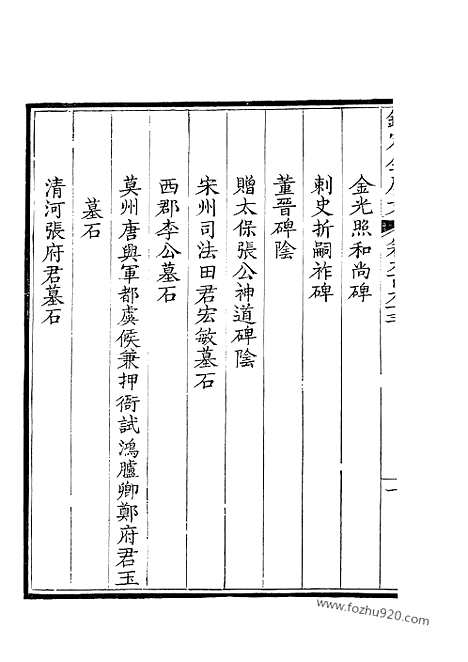 金光照和尚碑
刺史折嗣祚碑
董晉碑陰
贈太保張公神道碑陰
宋州司法田君宏敏墓石
西郡李公墓石
莫州唐興軍都虞候兼押衙試鴻臚卿鄭府君玉
墓石
清河張府君墓石
一
www.fozhu920.com